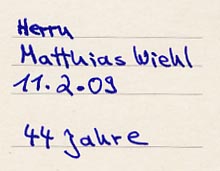 Herrn
Matthias Wiehl
11.2.09
44 Jahre